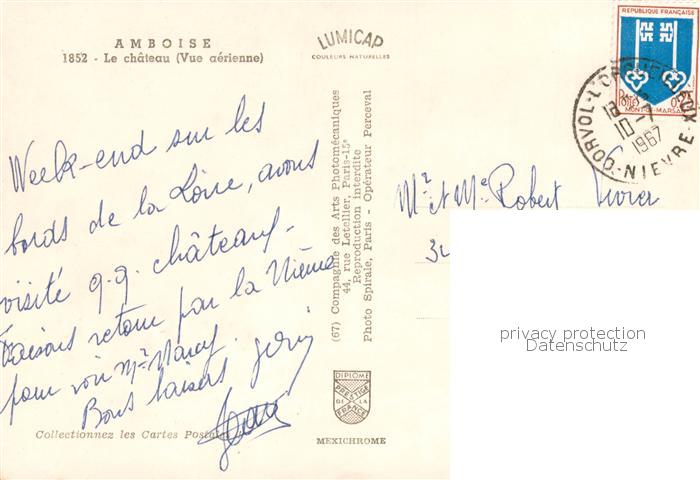 AMBOISE
1852 - Le château (Vue aérienne)
LUMICAP
COULEURS NATURELLES
REPUBLIQUE FRANÇAISE
MONT-DE-MARSAN
CORVOL-L'ORGUEILLEUX
10-7
1967
NIEVRE
Week-end sur les
bords de la Loire, avons
visité q.q. châteaux.
Faisons retour par la Nièvre
pour voir Mr
Bons baisers
Mr et Me Robert
(67) Compagnie des Arts Photomécaniques
44, rue Letellier, Paris-15e
Reproduction interdite
Photo Spirale, Paris - Opérateur Perceval
privacy protection
Datenschutz
DIPLOME
PRESTIGE
DE LA
FRANCE
MEXICHROME
Collectionnez les Cartes